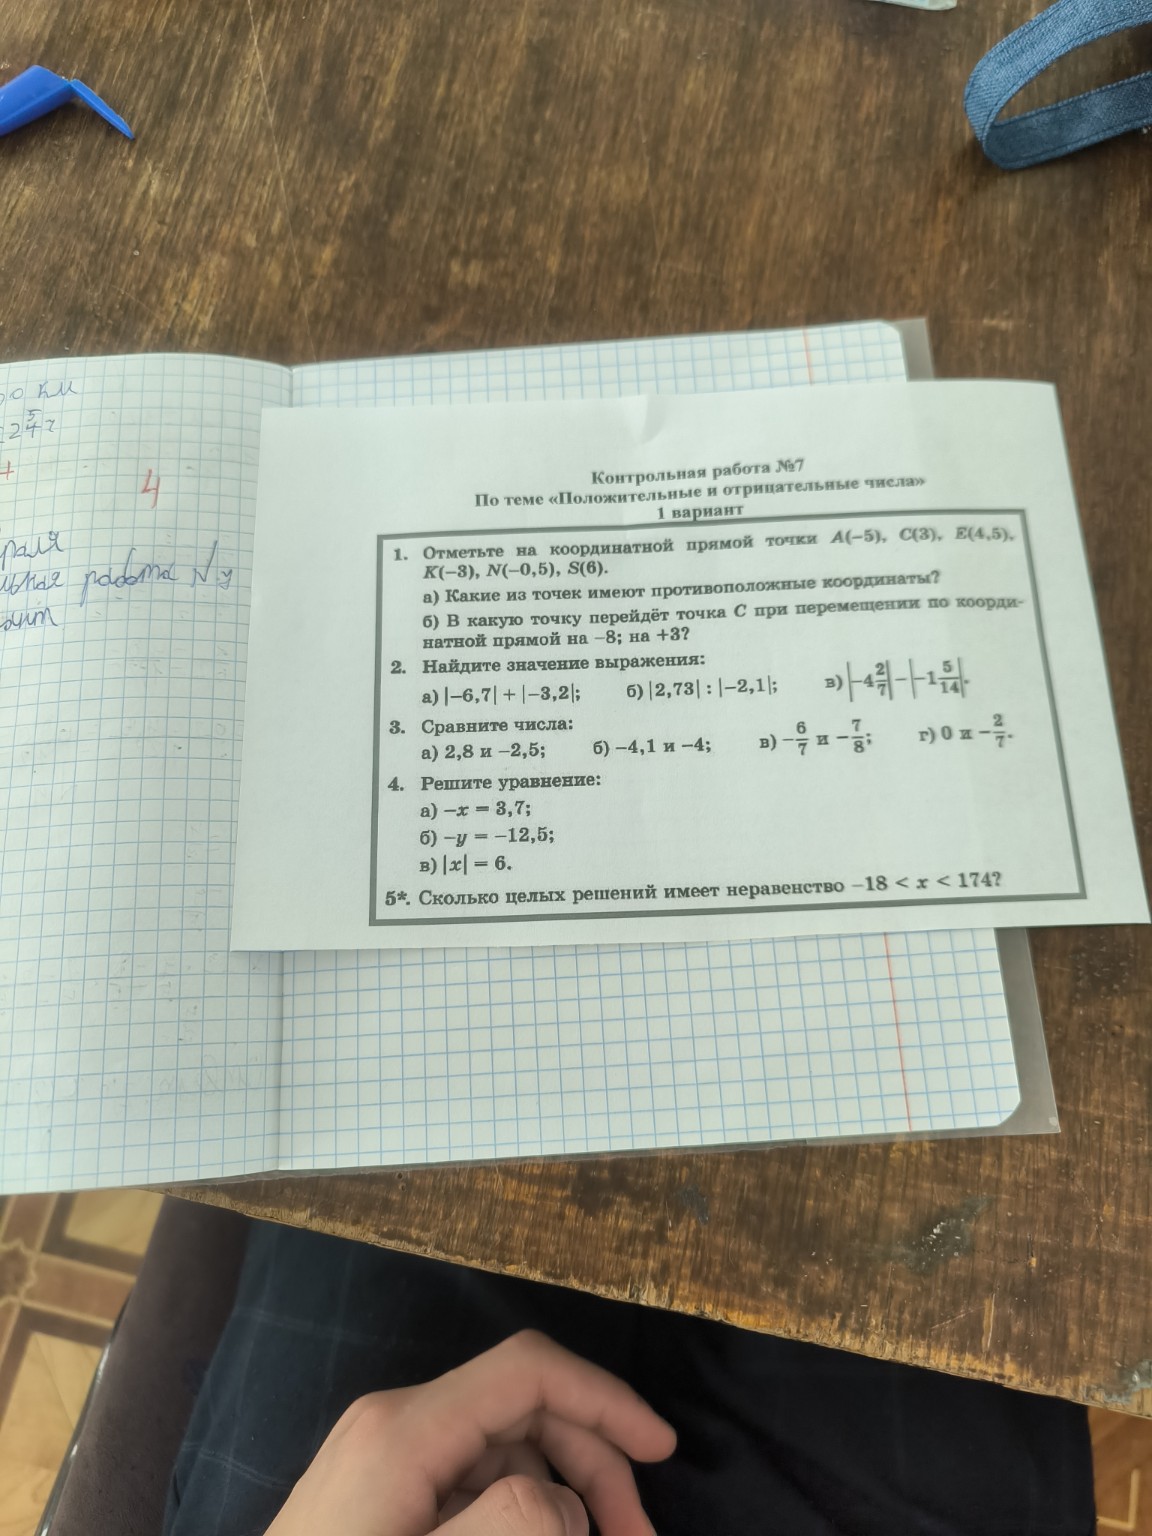 км
4
работа №7
Контрольная работа №7
По теме «Положительные и отрицательные числа»
1 вариант
1. Отметьте на координатной прямой точки A(−5), C(3), E(4,5),
K(−3), N(−0,5), S(6).
а) Какие из точек имеют противоположные координаты?
б) В какую точку перейдёт точка C при перемещении по коорди-
натной прямой на −8; на +3?
2. Найдите значение выражения:
а) |−6,7| + |−3,2|; б) |2,73| : |−2,1|; в) |−4 2/7| − |−1 5/14|.
3. Сравните числа:
а) 2,8 и −2,5; б) −4,1 и −4; в) −6/7 и −7/8; г) 0 и −2/7.
4. Решите уравнение:
а) −x = 3,7;
б) −y = −12,5;
в) |x| = 6.
5*. Сколько целых решений имеет неравенство −18 < x < 174?